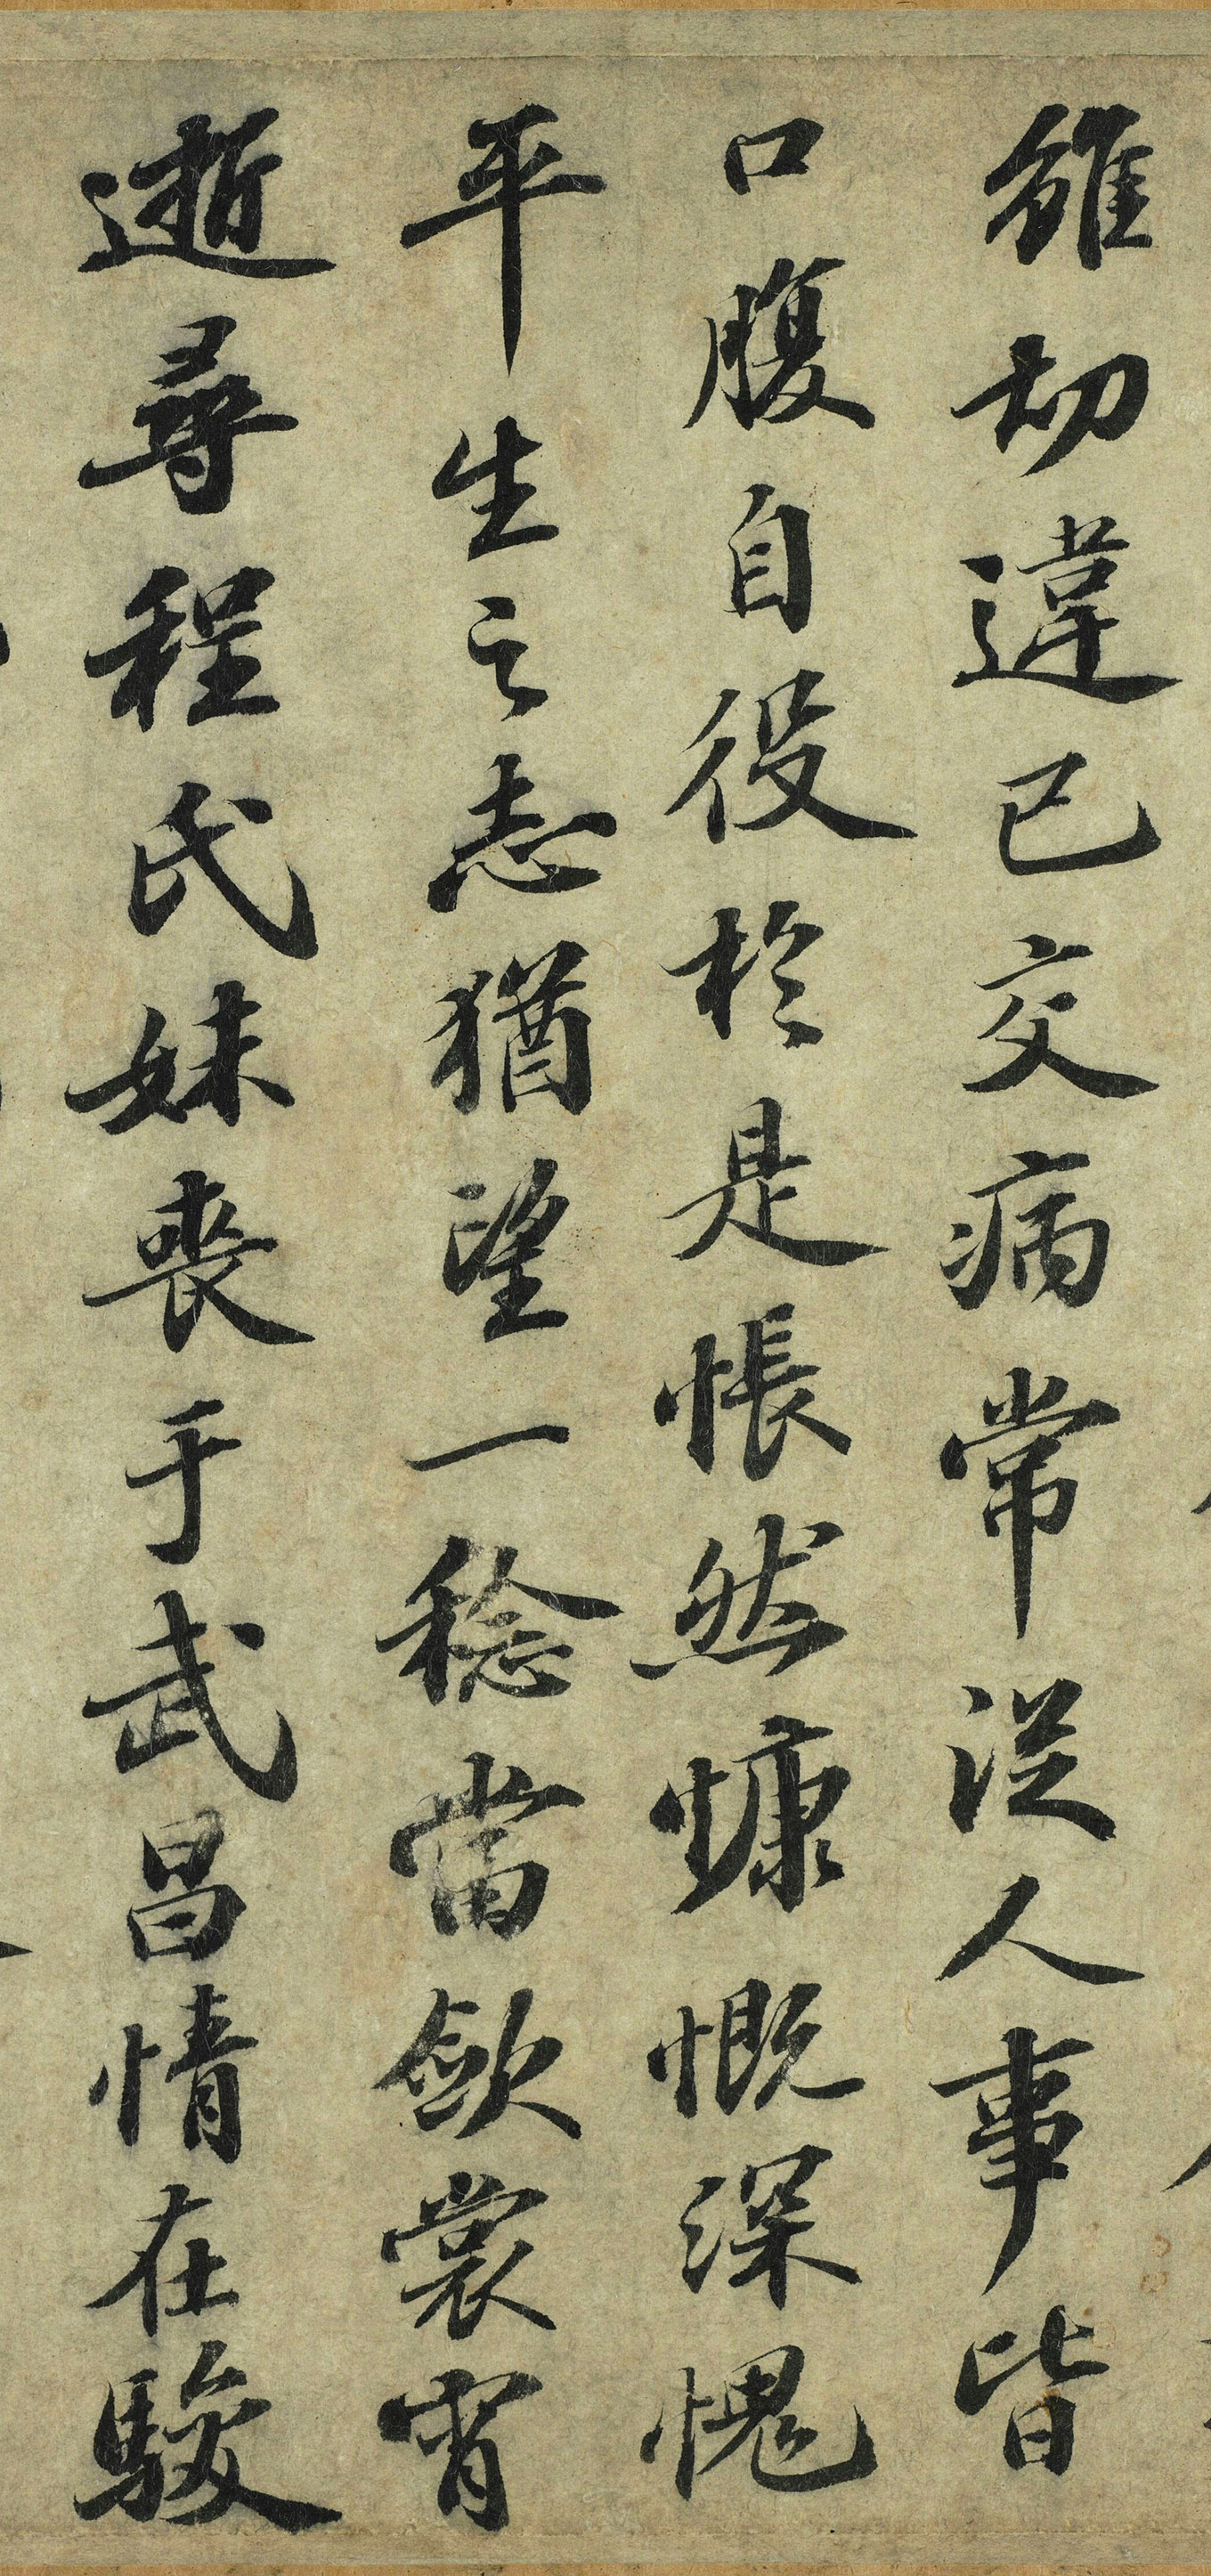 雖切違己交病常從人事皆
口腹自役於是悵然慷慨深愧
平生之志猶望一稔當斂裳宵
逝尋程氏妹喪于武昌情在駿